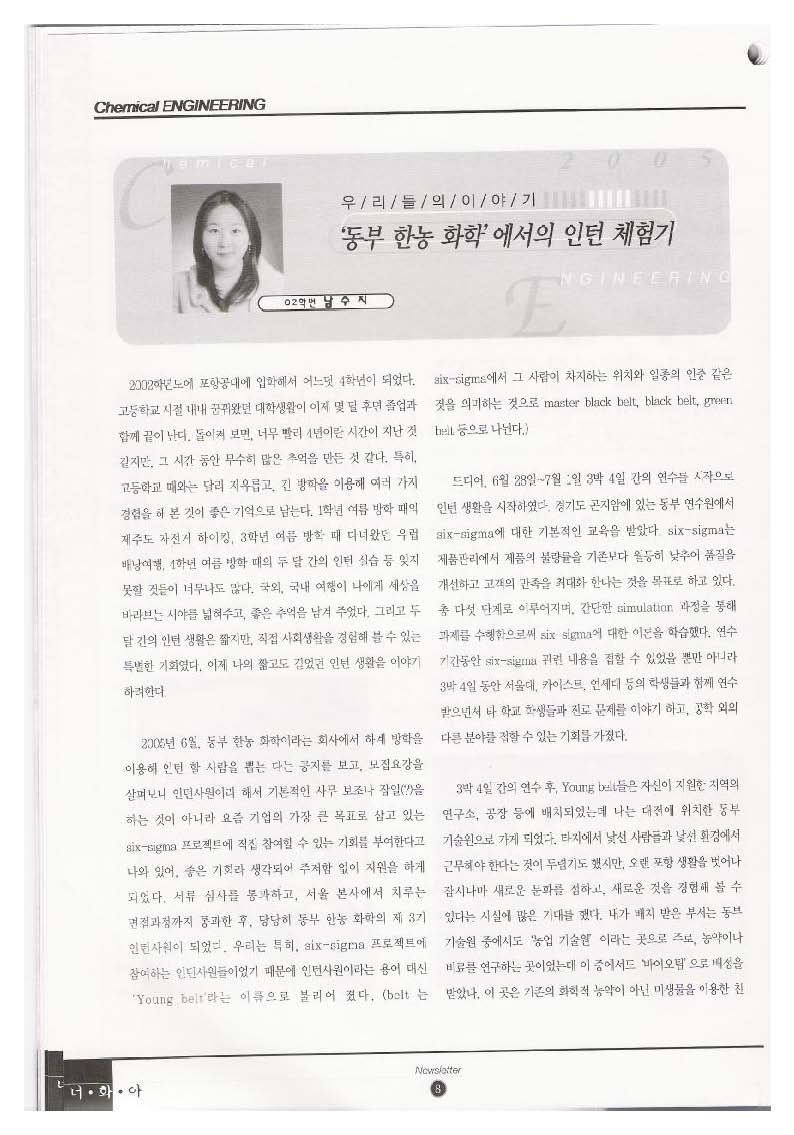 Chemical ENGINEERING
Chemical
2005
우/리/들/의/이/야/기
'동부 한농 화학'에서의 인턴 체험기
ENGINEERING
02학번 남수지
2002학년도에 포항공대에 입학해서 어느덧 4학년이 되었다.
고등학교 시절 내내 꿈꿔왔던 대학생활이 이제 몇 달 후면 졸업과
함께 끝이 난다. 돌이켜 보면, 너무 빨리 4년이란 시간이 지난 것
같지만, 그 시간 동안 무수히 많은 추억을 만든 것 같다. 특히,
고등학교 때와는 달리 자유롭고, 긴 방학을 이용해 여러 가지
경험을 해 본 것이 좋은 기억으로 남는다. 1학년 여름 방학 때의
제주도 자전거 하이킹, 3학년 여름 방학 때 다녀왔던 유럽
배낭여행, 4학년 여름 방학 때의 두 달 간의 인턴 실습 등 잊지
못할 것들이 너무나도 많다. 국외, 국내 여행이 나에게 세상을
바라보는 시야를 넓혀주고, 좋은 추억을 남겨 주었다. 그리고 두
달 간의 인턴 생활은 짧지만, 직접 사회생활을 경험해 볼 수 있는
특별한 기회였다. 이제 나의 짧고도 길었던 인턴 생활을 이야기
하려한다.
2005년 6월, 동부 한농 화학이라는 회사에서 하계 방학을
이용해 인턴 할 사람을 뽑는 다는 공지를 보고, 모집요강을
살펴보니 인턴사원이라 해서 기본적인 사무 보조나 잡일(?)을
하는 것이 아니라 요즘 기업의 가장 큰 목표로 삼고 있는
six-sigma 프로젝트에 직접 참여할 수 있는 기회를 부여한다고
나와 있어, 좋은 기회라 생각되어 주저함 없이 지원을 하게
되었다. 서류 심사를 통과하고, 서울 본사에서 치루는
면접과정까지 통과한 후, 당당히 동부 한농 화학의 제 3기
인턴사원이 되었다. 우리는 특히, six-sigma 프로젝트에
참여하는 인턴사원들이었기 때문에 인턴사원이라는 용어 대신
'Young belt'라는 이름으로 불리어 졌다. (belt 는
six-sigma에서 그 사람이 차지하는 위치와 일종의 인증 같은
것을 의미하는 것으로 master black belt, black belt, green
belt 등으로 나뉜다.)
드디어, 6월 28일~7월 1일 3박 4일 간의 연수를 시작으로
인턴 생활을 시작하였다. 경기도 곤지암에 있는 동부 연수원에서
six-sigma에 대한 기본적인 교육을 받았다. six-sigma는
제품관리에서 제품의 불량률을 기존보다 월등히 낮추어 품질을
개선하고 고객의 만족을 최대화 한다는 것을 목표로 하고 있다.
총 다섯 단계로 이루어지며, 간단한 simulation 과정을 통해
과제를 수행함으로써 six-sigma에 대한 이론을 학습했다. 연수
기간동안 six-sigma 관련 내용을 접할 수 있었을 뿐만 아니라
3박 4일 동안 서울대, 카이스트, 연세대 등의 학생들과 함께 연수
받으면서 타 학교 학생들과 진로 문제를 이야기 하고, 공학 외의
다른 분야를 접할 수 있는 기회를 가졌다.
3박 4일 간의 연수 후, Young belt들은 자신이 지원한 지역의
연구소, 공장 등에 배치되었는데 나는 대전에 위치한 동부
기술원으로 가게 되었다. 타지에서 낯선 사람들과 낯선 환경에서
근무해야 한다는 것이 두렵기도 했지만, 오랜 포항 생활을 벗어나
잠시나마 새로운 문화를 접하고, 새로운 것을 경험해 볼 수
있다는 사실에 많은 기대를 했다. 내가 배치 받은 부서는 동부
기술원 중에서도 '농업 기술원' 이라는 곳으로 주로, 농약이나
비료를 연구하는 곳이었는데 이 중에서도 '바이오팀'으로 배정을
받았다. 이 곳은 기존의 화학적 농약이 아닌 미생물을 이용한 친
Newsletter
8
너·화·아